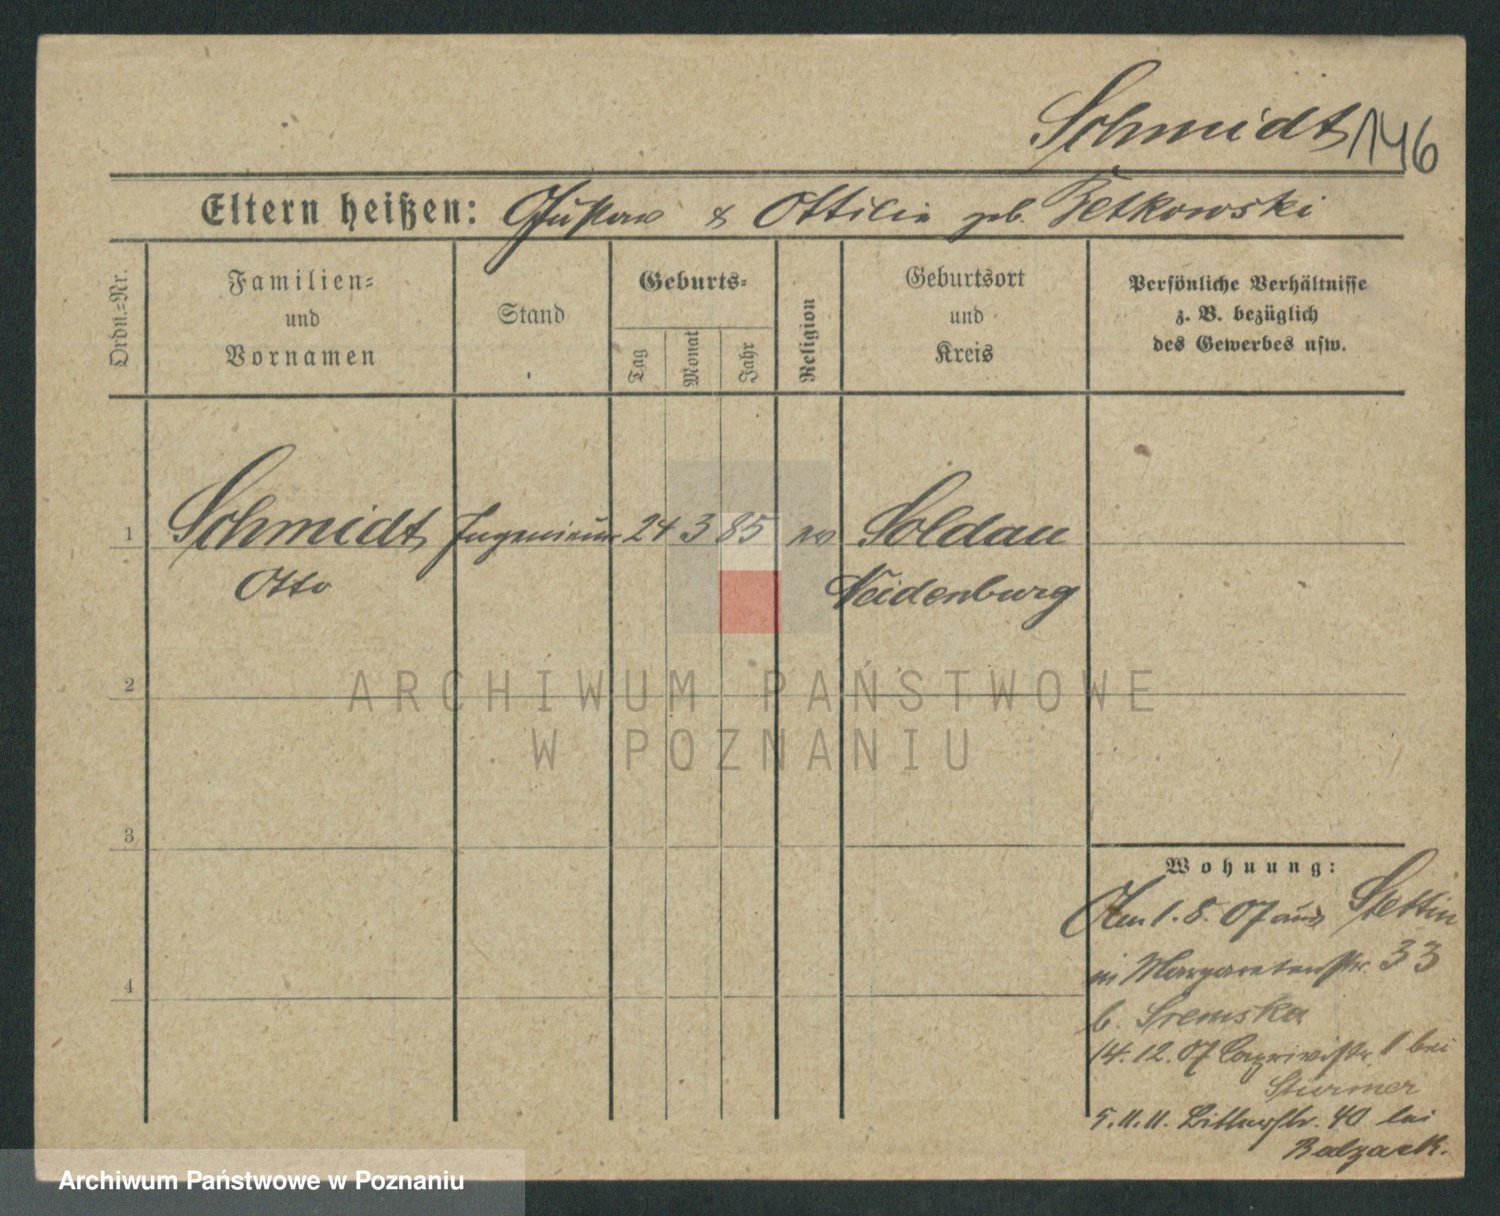 Schmidt 146
Eltern heißen: Gustav & Ottilie geb. Zetkowski
Ordn.=Nr.
Familien=
und
Vornamen
Stand
Geburts=
Tag
Monat
Jahr
Religion
Geburtsort
und
Kreis
Persönliche Verhältnisse
z. B. bezüglich
des Gewerbes usw.
1 Schmidt Ingenieur 24 3 85 ev Soldau
Otto Neidenburg
2
ARCHIWUM PAŃSTWOWE
W POZNANIU
3
4
Wohnung:
Am 1. 8. 07 aus Stettin
in Margaretenstr. 33
b. Sremska
14. 12. 07 Caprivistr. 1 bei
Sturmer
5. 11. 11. 40 bei
Balzack.
Archiwum Państwowe w Poznaniu